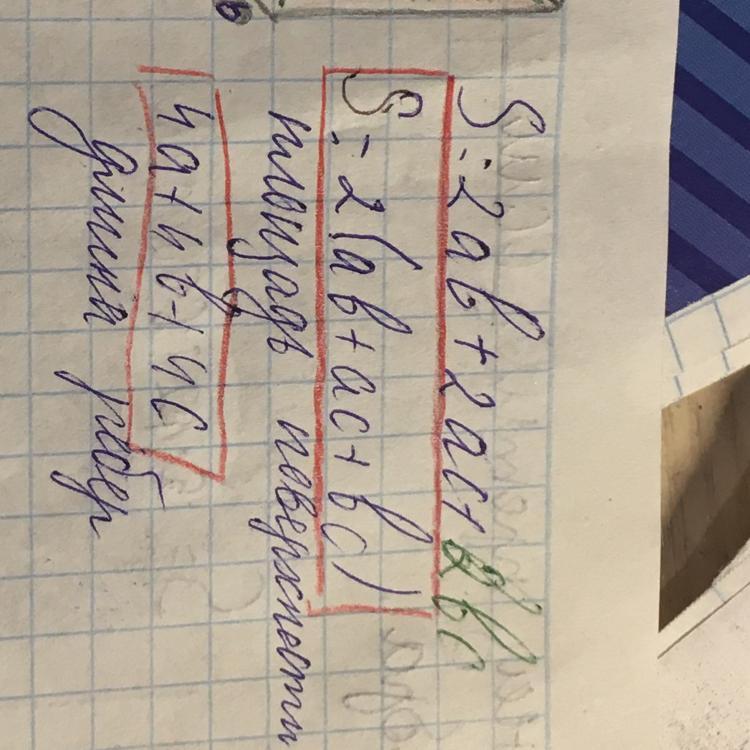 S = 2ab + 2ac + 2bc
S = 2(ab + ac + bc)
площадь поверхности
4a + 4b + 4c
длина рёбер